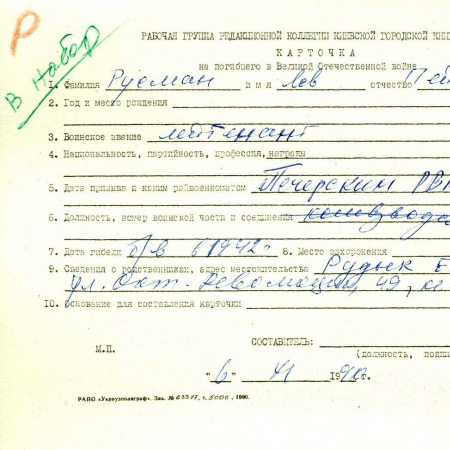 Р
В набор
РАБОЧАЯ ГРУППА РЕДАКЦИОННОЙ КОЛЛЕГИИ КИЕВСКОЙ ГОРОДСКОЙ КНИ
КАРТОЧКА
на погибшего в Великой Отечественной войне
1. Фамилия Русман имя Лев отчество Пей
2. Год и место рождения
3. Воинское звание лейтенант
4. Национальность, партийность, профессия, награды
5. Дата призыва и каким райвоенкоматом Печерским РВК
6. Должность, номер воинской части и соединения комвзвода
7. Дата гибели б/в 6 1942г 8. Место захоронения
9. Сведения о родственниках, адрес местожительства Рудык Е
ул. Окт. Революции, 49, кв
10. Основание для составления карточки
СОСТАВИТЕЛЬ:
М.П. (должность, подпи
"6" 11 1990г.
РАПО «Укрвузполиграф». Зак. № 03317, т. 5000, 1990.